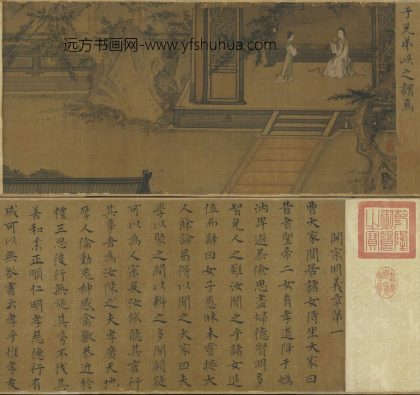 远方书画网-www.yfshuhua.com
開宗明義章第一
曹大家閒居諸女侍坐大家曰
昔者聖帝二女有孝道降于媯
汭卑遜恭儉思盡婦德賢明多
智免人之難汝聞之乎諸女退
位而辭曰女子愚昧未嘗接大
人餘論曷得以聞之大家曰夫
學以聚之問以辯之多聞闕疑
可以為人宗矣汝能聽其言行
其事吾為汝陳之夫孝廣天地
厚人倫動鬼神感禽獸恭近於
禮三思後行無施其勞不伐其
善和柔正順仁明孝慈德行有
成可以無咎書云孝乎惟孝友
于兄弟此之謂焉